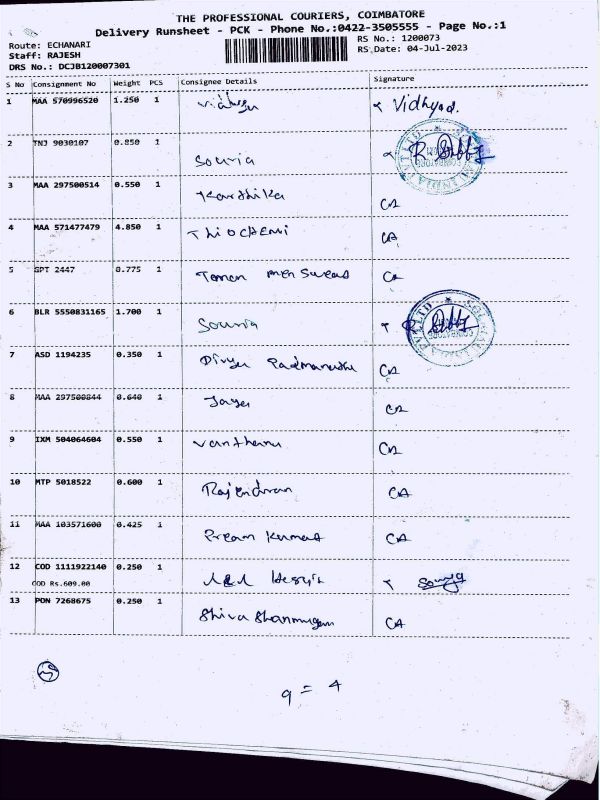 THE PROFESSIONAL COURIERS, COIMBATORE
Delivery Runsheet - PCK - Phone No.:0422-3505555 - Page No.:1
Route: ECHANARI
RS No.: 1200073
Staff: RAJESH
RS Date: 04-Jul-2023
DRS No.: DCJB120007301
S No Consignment No Weight PCS Consignee Details Signature
1 MAA 570996520 1.250 1 Vidhyad.
2 TNJ 9030107 0.850 1 Souria
3 MAA 297500514 0.550 1 Karthika CA
4 MAA 571477479 4.850 1 CA
5 GPT 2447 0.775 1 CA
6 BLR 5550831165 1.700 1 Souria
7 ASD 1194235 0.350 1 Divya CA
8 MAA 297500844 0.640 1 Jaya CA
9 IXM 504064604 0.550 1 CA
10 MTP 5018522 0.600 1 Rajendran CA
11 MAA 103571600 0.425 1 Pream Kumar CA
12 COD 1111922140 0.250 1
COD Rs.609.00
13 PON 7268675 0.250 1 Shiva Shanmugam CA
9 = 4